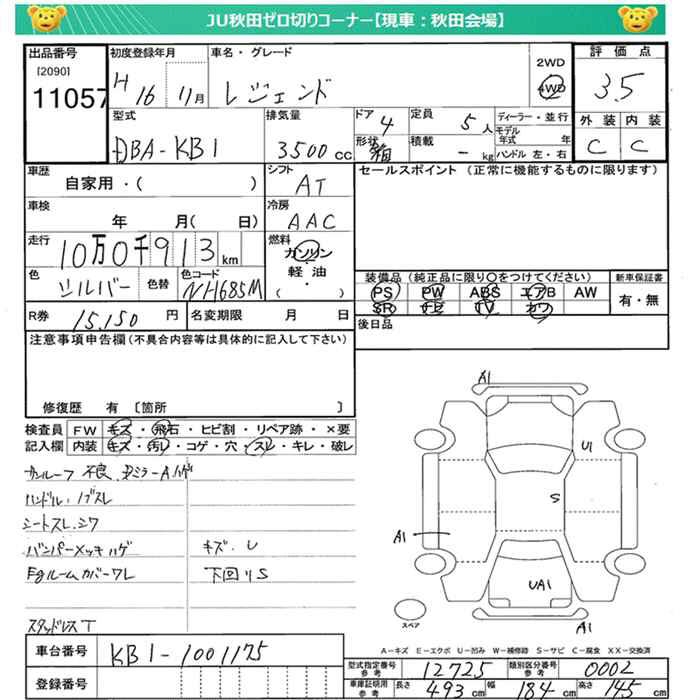 JU秋田ゼロ切りコーナー【現車：秋田会場】
出品番号
[2090]
11057
初度登録年月
H 16 11月
車名・グレード
レジェンド
2WD
4WD
評価点
3.5
型式
DBA-KB1
排気量
3500 cc
ドア 4
形状 箱
定員 5人
積載 - kg
ディーラー・並行
モデル年式 年
ハンドル 左・右
外装 内装
C C
車歴
自家用・( )
シフト
AT
セールスポイント (正常に機能するものに限ります)
車検
年 月( 日)
冷房
AAC
走行
10万0千913km
燃料
ガソリン
軽油
・
( )
色
シルバー
色替
色コード
NH685M
装備品 (純正品に限り○をつけてください)
新車保証書
PS PW ABS エアB AW
有・無
SR ナビ TV カワ
R券 15,150 円
名変期限 月 日
後日品
注意事項申告欄 (不具合内容等は具体的に記入して下さい)
修復歴 有 〔箇所 〕
検査員記入欄
FW キズ・飛石・ヒビ割・リペア跡・×要
内装 キズ・汚レ・コゲ・穴・スレ・キレ・破レ
サンルーフ不良. ドミラーAハゲ
ハンドル・ノブスレ
シートスレ.シワ
バンパーメッキハゲ
キズ.U
Egルームカバーワレ
下回りS
スタッドレスT
A1
U1
S
A1
UA1
A1
スペア
A-キズ E-エクボ U-凹み W-補修跡 S-サビ C-腐食 XX-交換済
車台番号
KB1-1001175
登録番号
型式指定番号 参考 12725
類別区分番号 参考 0002
車庫証明用 参考 長さ 493 cm 幅 184 cm 高さ 145 cm